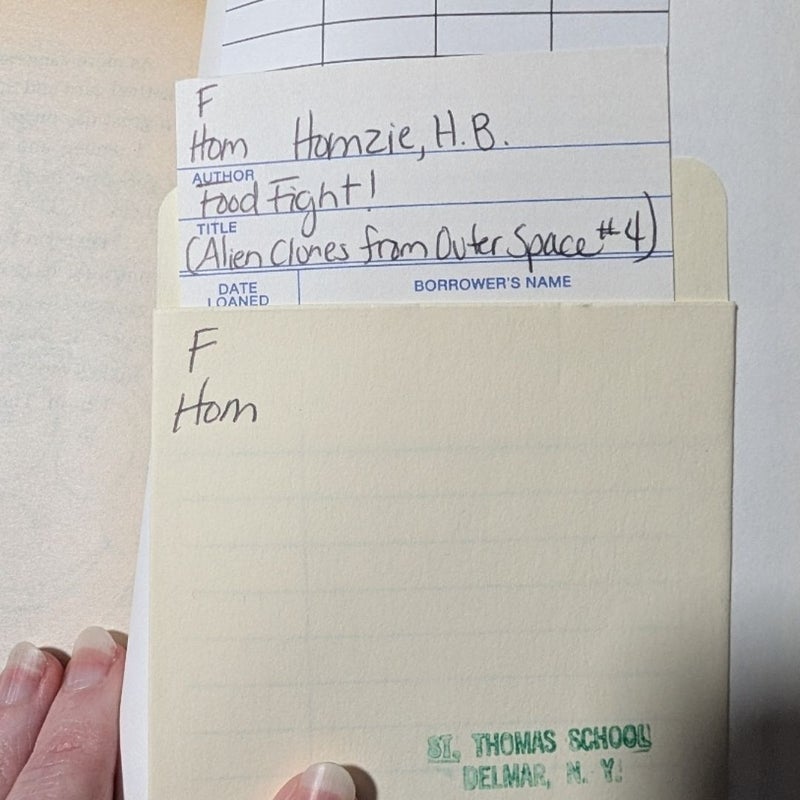 F
Hom Homzie, H.B.
AUTHOR
Food Fight!
TITLE
(Alien Clones from Outer Space #4)
DATE LOANED
BORROWER'S NAME
F
Hom
ST. THOMAS SCHOOL
DELMAR, N. Y.